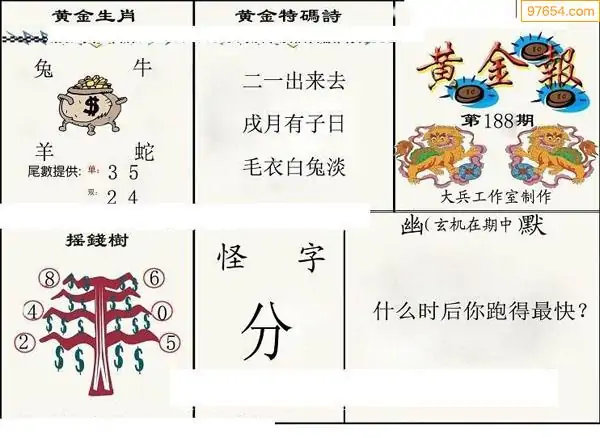 97654.com
黄金生肖
兔 牛
$
羊 蛇
尾數提供: 单: 3 5
双: 2 4
黄金特碼詩
二一出来去
戌月有子日
毛衣白兔淡
黄金報
第188期
大兵工作室制作
摇錢樹
8 6
4 0
2 5
怪字
分
幽(玄机在期中)默
什么时后你跑得最快?